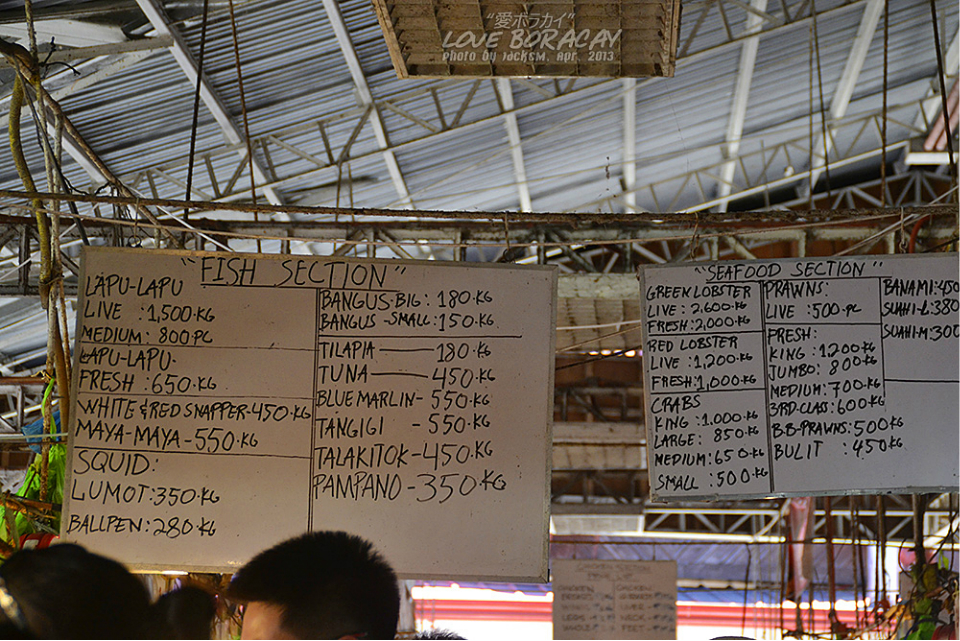 "愛ボラカイ"
LOVE BORACAY
photo by jacksm, apr. 2013
"FISH SECTION"
LAPU-LAPU
LIVE :1,500·KG
MEDIUM: 800·PC
LAPU-LAPU·
FRESH :650·KG
WHITE & RED SNAPPER-450·KG
MAYA-MAYA-550·KG
SQUID:
LUMOT:350·KG
BALLPEN:280·KG
BANGUS-BIG: 180·KG
BANGUS-SMALL:150·KG
TILAPIA —— 180·KG
TUNA —— 450·KG
BLUE MARLIN- 550·KG
TANGIGI - 550·KG
TALAKITOK-450·KG
PAMPANO-350·KG
"SEAFOOD SECTION"
GREEN LOBSTER
LIVE :2,600·KG
FRESH:2,000·KG
RED LOBSTER
LIVE :1,200·KG
FRESH:1,000·KG
CRABS
KING :1.000·KG
LARGE: 850·KG
MEDIUM:650·KG
SMALL :500·KG
PRAWNS:
LIVE :500·PC
FRESH:
KING :1200·KG
JUMBO: 800·KG
MEDIUM:700·KG
3RD-CLASS:600·KG
B.B-PRAWNS:500·KG
BULIT :450·KG
BANAMI:450
SUAHI-L:380
SUAHI-M:300
CHICKEN SECTION
CHICKEN
WINGS
LEGS
WHOLE
LIVER
NECK
FEET